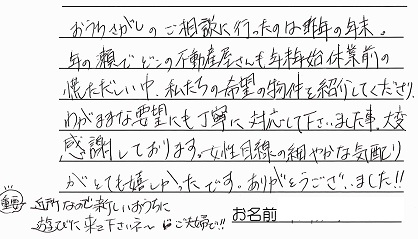 おうちさがしのご相談に行ったのは昨年の年末。
年の瀬でどこの不動産屋さんも年末年始休業前の
慌ただしい中、私たちの希望の物件を紹介してくださり
わがままな要望にも丁寧に対応して下さいました事、大変
感謝しております。女性目線の細やかな気配り
がとても嬉しかったです。ありがとうございました!!
重要 近所なので新しいおうちに
遊びに来て下さいネ〜 ご夫婦で!!
お名前